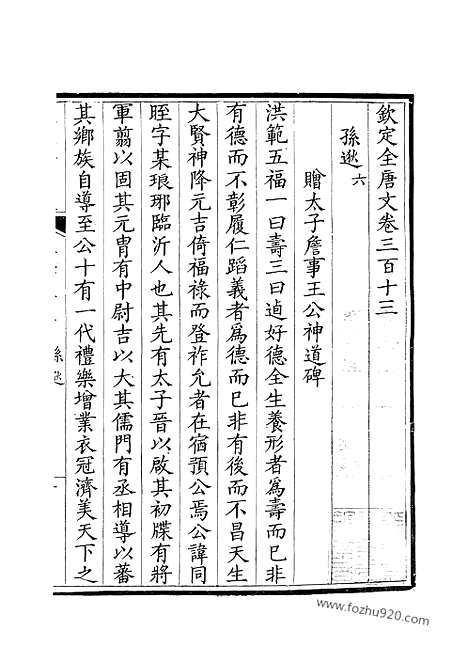 欽定全唐文卷三百十三
孫逖六
贈太子詹事王公神道碑
洪範五福一曰壽三曰逌好德全生養形者為壽而已非
有德而不彰履仁蹈義者為德而已非有後而不昌天生
大賢神降元吉倚福祿而登祚允者在宿預公焉公諱同
晊字某琅邪臨沂人也其先有太子晉以啟其初牒有將
軍翦以固其元冑有中尉吉以大其儒門有丞相導以蕃
其鄉族自導至公十有一代禮樂增業衣冠濟美天下之
孫逖
www.fozhu920.com